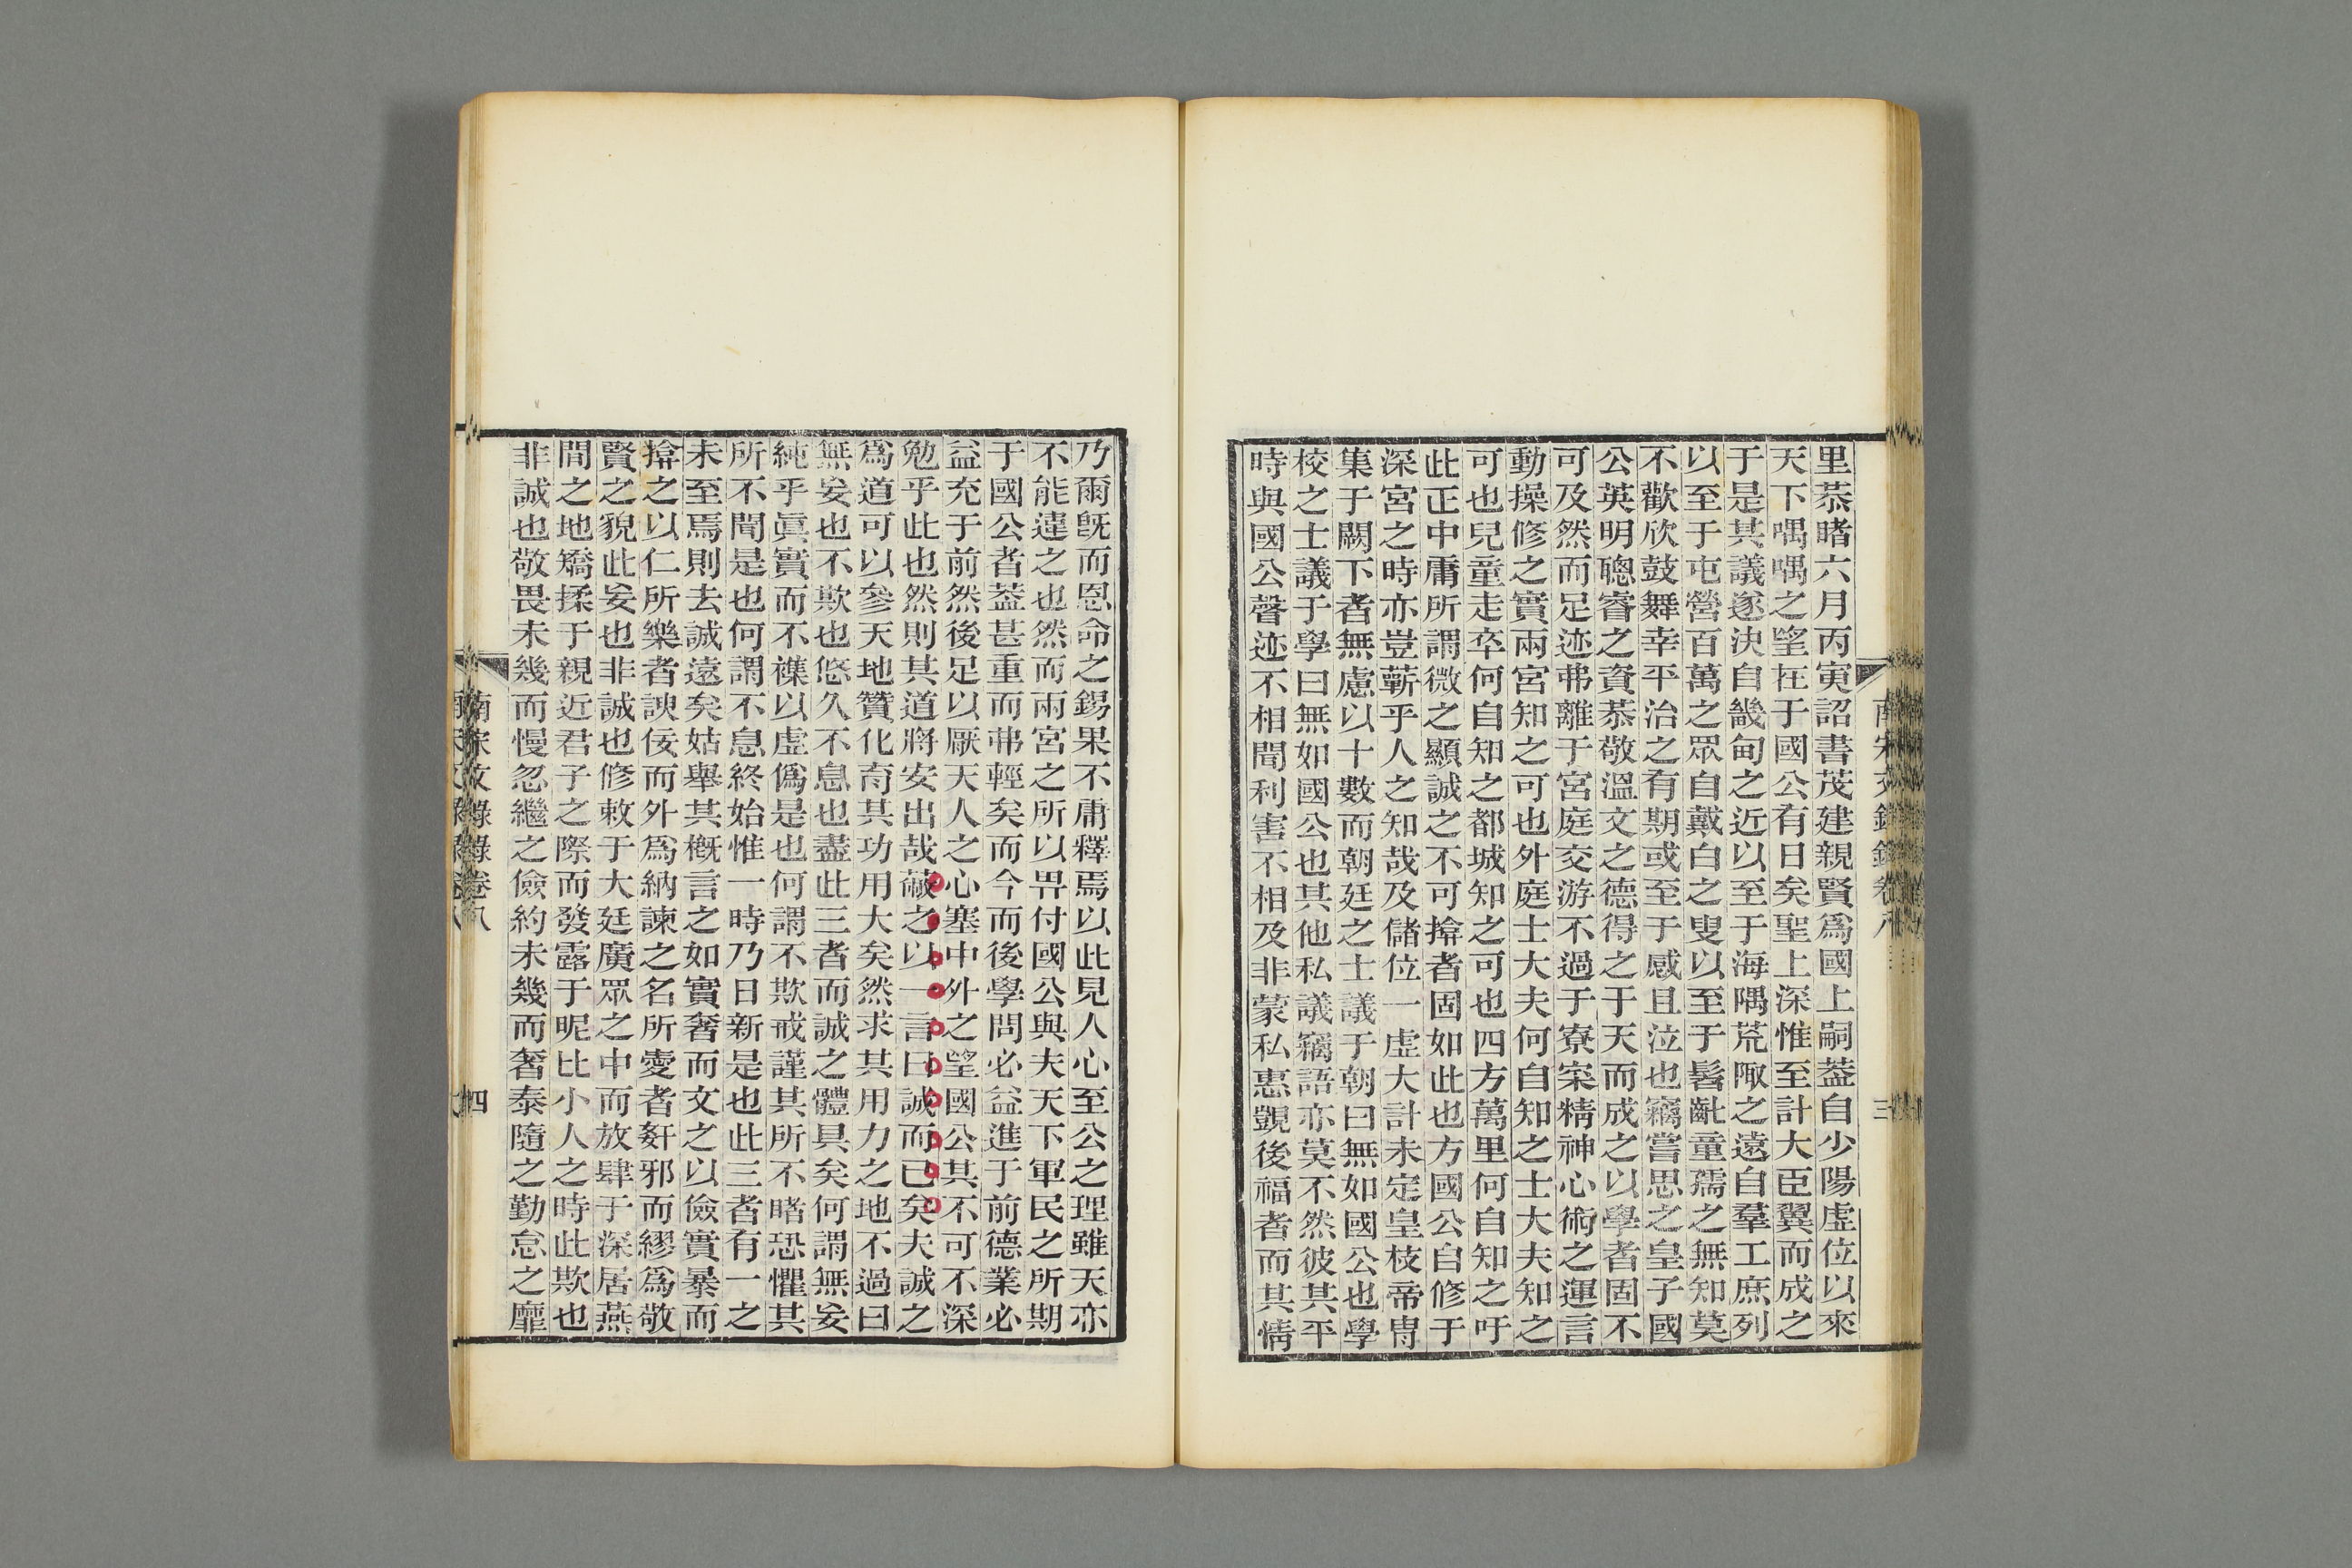 里恭睹六月丙寅詔書茂建親賢爲國上嗣葢自少陽虛位以來
天下喁喁之望在于國公有日矣聖上深惟至計大臣翼而成之
于是其議遂決自畿甸之近以至于海隅荒陬之遠自羣工庶列
以至于屯營百萬之眾自戴白之叟以至于髫齔童孺之無知莫
不歡欣鼓舞幸平治之有期或至于感且泣也竊嘗思之皇子國
公英明聰睿之資恭敬溫文之德得之于天而成之以學者固不
可及然而足迹弗離于宮庭交游不過于寮寀精神心術之運言
動操修之實兩宮知之可也外庭士大夫何自知之士大夫知之
可也兒童走卒何自知之都城知之可也四方萬里何自知之吁
此正中庸所謂微之顯誠之不可揜者固如此也方國公自修于
深宮之時亦豈蘄乎人之知哉及儲位一虛大計未定皇枝帝胄
集于闕下者無慮以十數而朝廷之士議于朝曰無如國公也學
校之士議于學曰無如國公也其他私議竊語亦莫不然彼其平
時與國公聲迹不相聞利害不相及非蒙私惠覬後福者而其情
南宋文錄錄卷八
三
乃爾旣而恩命之錫果不庸釋焉以此見人心至公之理雖天亦
不能違之也然而兩宮之所以畀付國公與夫天下軍民之所期
于國公者葢甚重而弗輕矣而今而後學問必益進于前德業必
益充于前然後足以厭天人之心塞中外之望國公其不可不深
勉乎此也然則其道將安出哉蔽之以一言曰誠而已矣夫誠之
爲道可以參天地贊化育其功用大矣然求其用力之地不過曰
無妄也不欺也悠久不息也盡此三者而誠之體具矣何謂無妄
純乎眞實而不襍以虛僞是也何謂不欺戒謹其所不睹恐懼其
所不聞是也何謂不息終始惟一時乃日新是也此三者有一之
未至焉則去誠遠矣姑舉其槪言之如實奢而文之以儉實暴而
揜之以仁所樂者諛佞而外爲納諫之名所愛者姧邪而繆爲敬
賢之貌此妄也非誠也修敕于大廷廣眾之中而放肆于深居燕
閒之地矯揉于親近君子之際而發露于昵比小人之時此欺也
非誠也敬畏未幾而慢忽繼之儉約未幾而奢泰隨之勤怠之靡
南宋文錄錄卷八
四